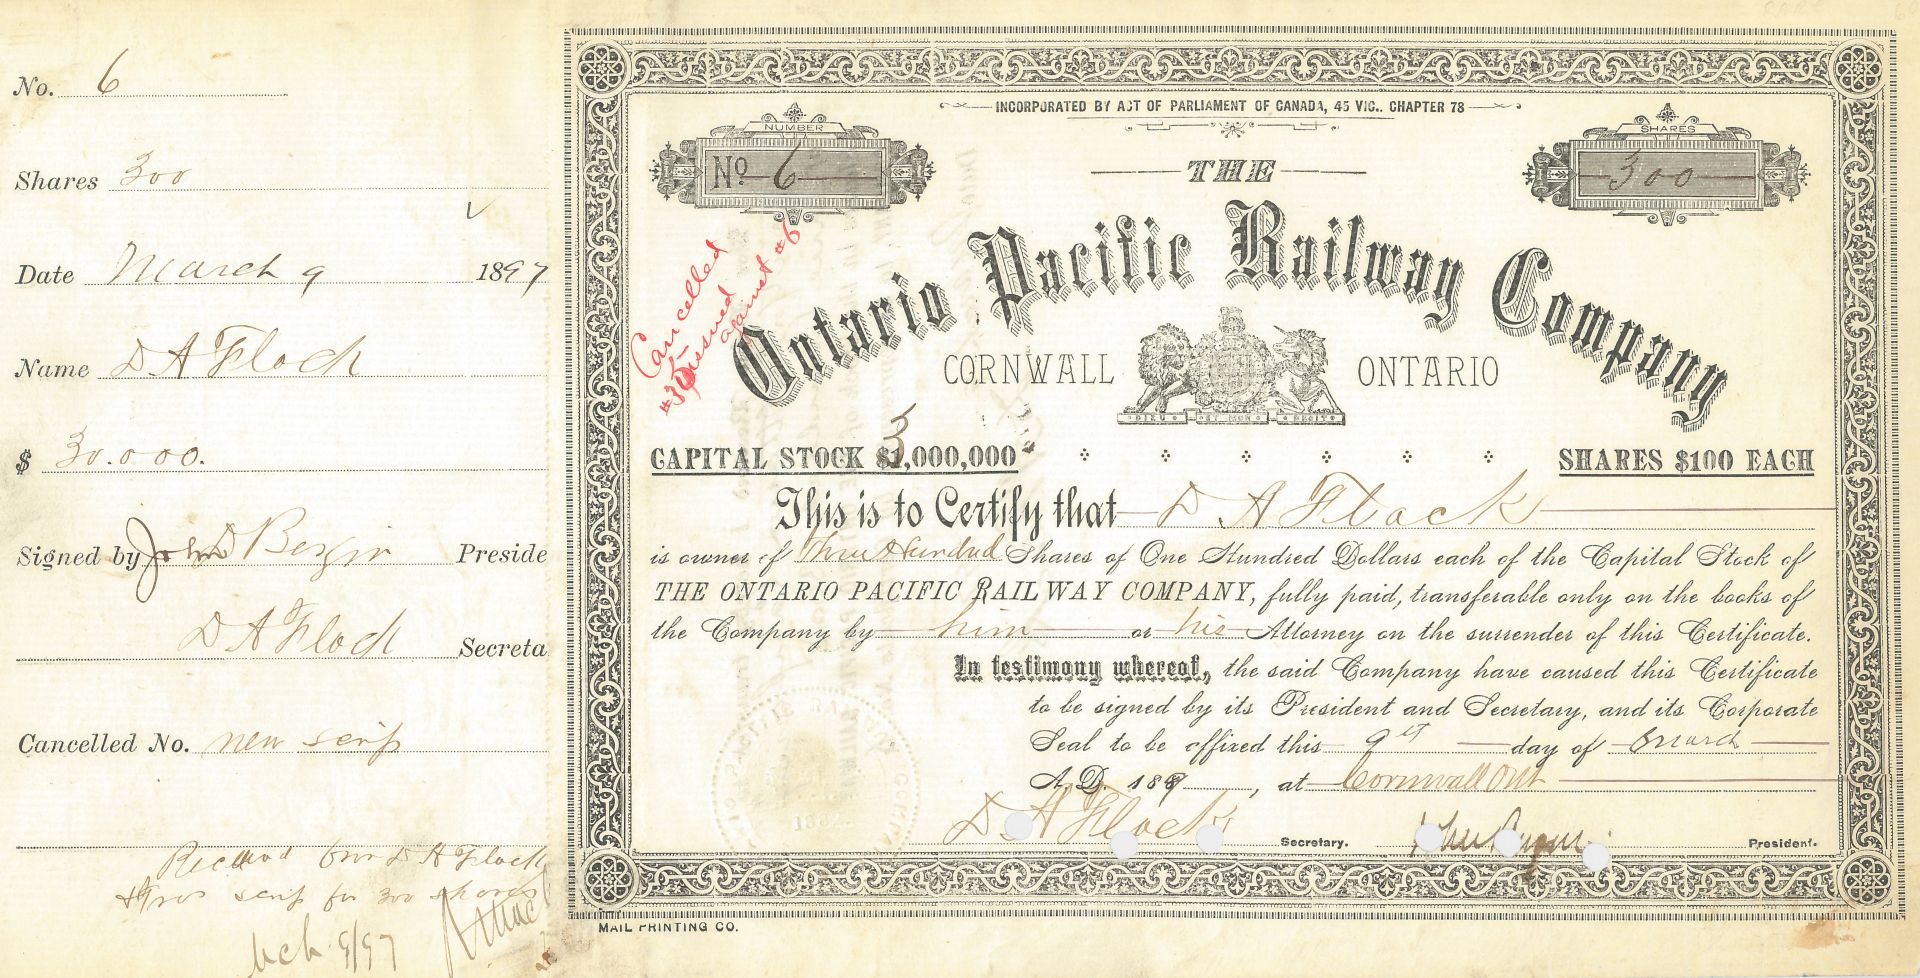 No. 6
Shares 300
Date March 9 1897
Name D A Flack
$ 30.000.
Signed by John Bergin Preside
D A Flack Secreta
Cancelled No. new scrip
Received from D A Flack
scrip for 300 shares
Mch 9/97
INCORPORATED BY ACT OF PARLIAMENT OF CANADA, 45 VIC., CHAPTER 78
NUMBER
No 6
SHARES
300
THE
Ontario Pacific Railway Company
Cancelled
#35 issued
against #6
CORNWALL ONTARIO
DIEU ET MON DROIT
CAPITAL STOCK $3,000,000 SHARES $100 EACH
This is to Certify that D A Flack
is owner of Three Hundred Shares of One Hundred Dollars each of the Capital Stock of
THE ONTARIO PACIFIC RAILWAY COMPANY, fully paid, transferable only on the books of
the Company by him or his Attorney on the surrender of this Certificate.
In testimony whereof, the said Company have caused this Certificate
to be signed by its President and Secretary, and its Corporate
Seal to be affixed this 9th day of March
A.D. 1897, at Cornwall Ont
D A Flack Secretary. John Bergin President.
1882
MAIL PRINTING CO.